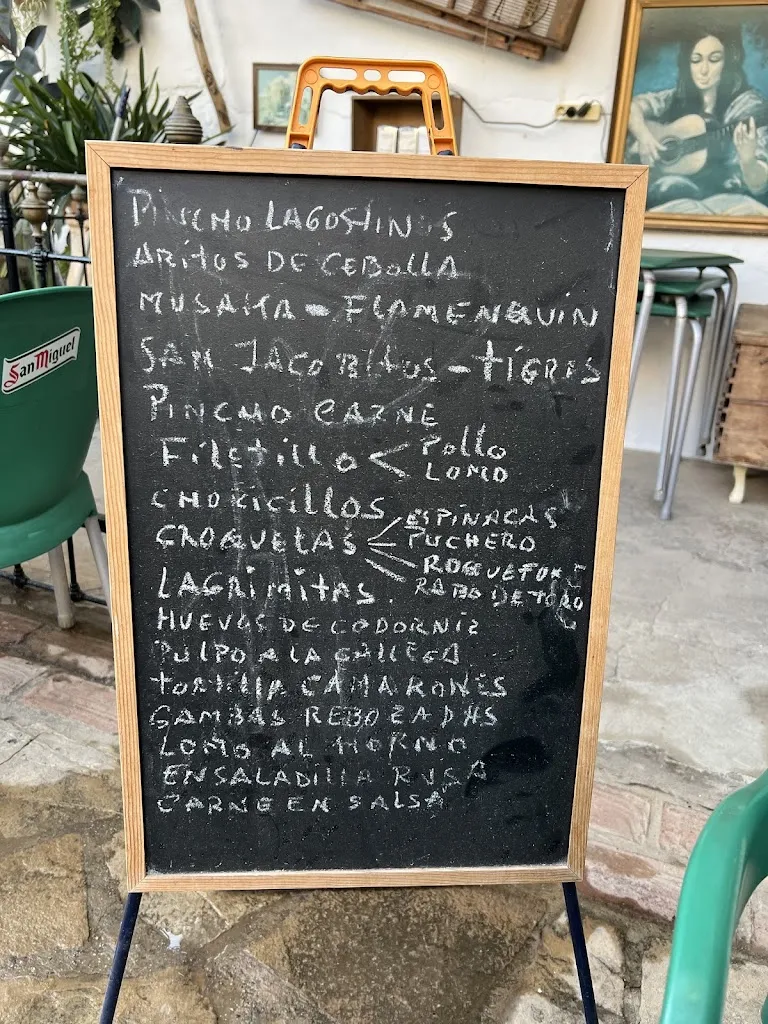 PINCHO LAGOSTINOS
ARITOS DE CEBOLLA
MUSAKA - FLAMENQUIN
SAN JACOBITOS - TIGRES
PINCHO CARNE
FilEtillo < Pollo
LOMO
CHORICILLOS
CROQUETAS
ESPINACAS
PUCHERO
ROQUEFORT
RABO DE TORO
LAGRIMITAS.
HUEVOS DE CODORNIZ
PULPO A LA GALLEGA
TORTILLA CAMARONES
GAMBAS REBOZADAS
LOMO AL HORNO
ENSALADILLA RUSA
CARNE EN SALSA
San Miguel